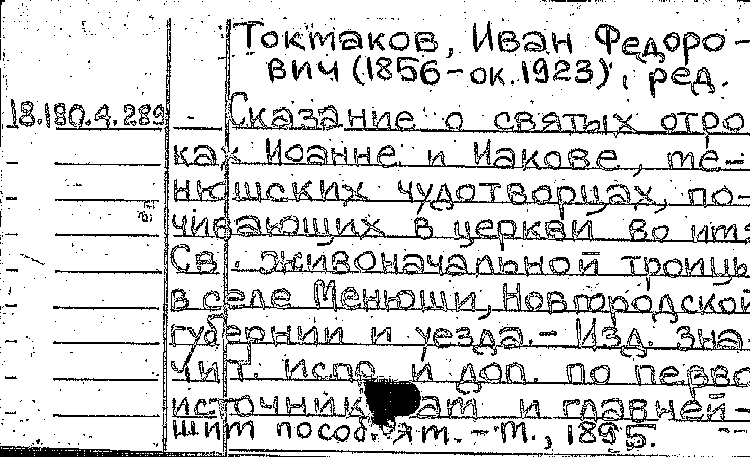 Токмаков, Иван Федоро-
вич (1856-ок.1923), ред.
18.180.4.289 Сказание о святых отро
ках Иоанне и Иакове, ме-
нюшских чудотворцах, по-
чивающих в церкви во имя
Св. живоначальной троицы
в селе Менюши, Новгородской
губернии и уезда.- Изд. зна-
чит. испр и доп. по перво
источник ат и главней-
шим пособ. ят. - М., 1895.